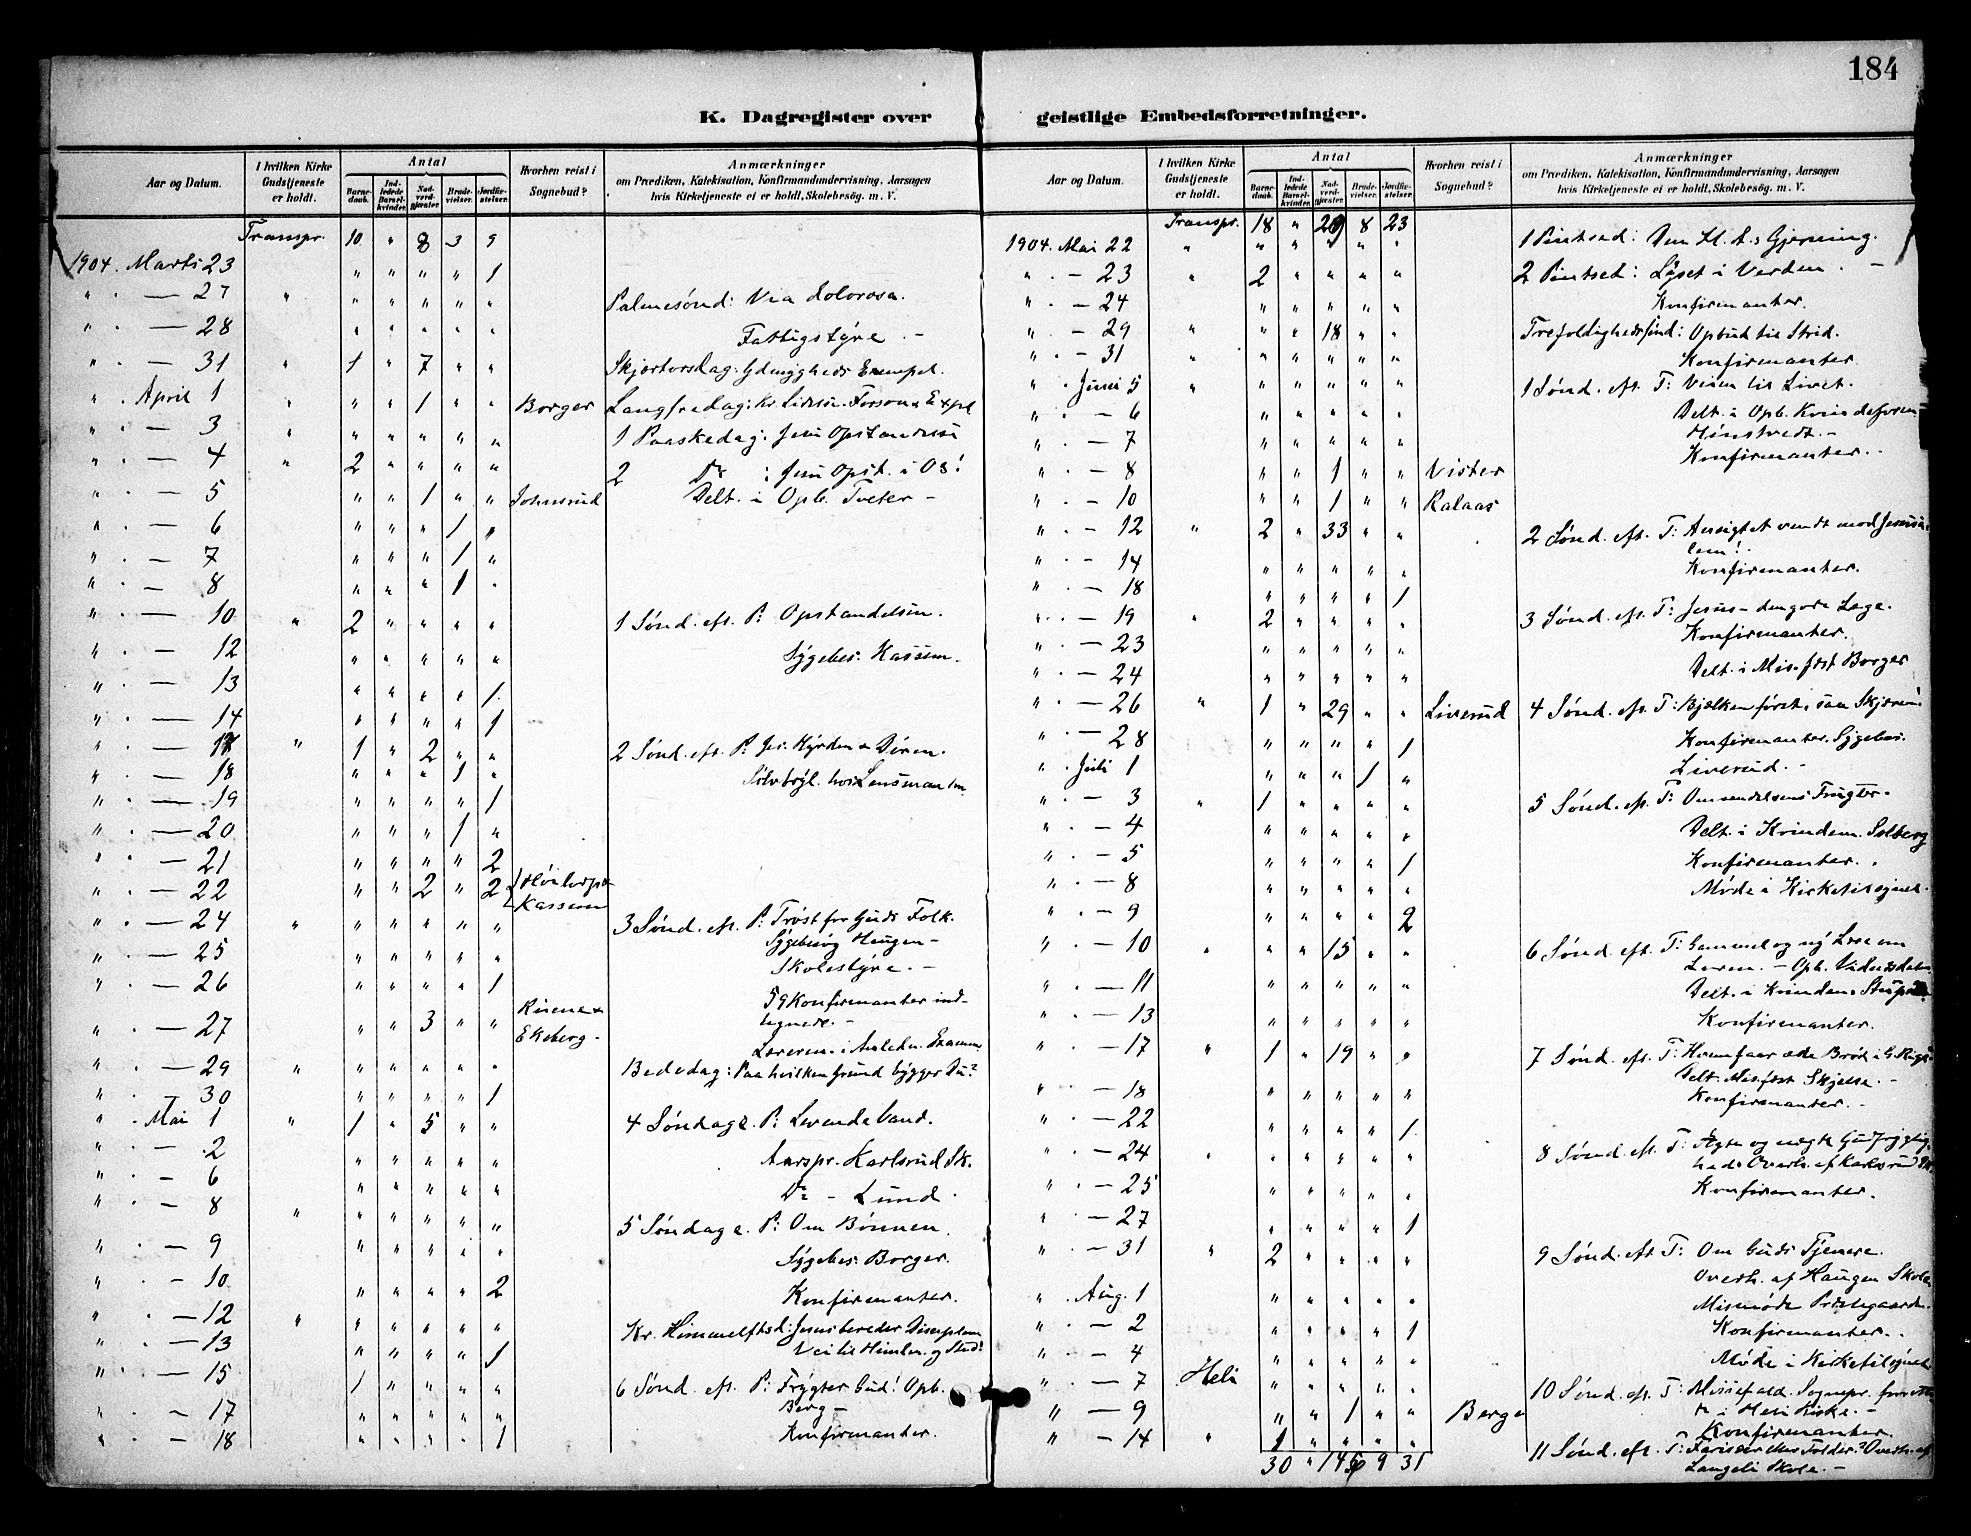 184
K. Dagregister over geistlige Embedsforretninger.
Aar og Datum.
I hvilken Kirke Gudstjeneste er holdt.
Antal
Barnedaab.
Indledede Barselkvinder.
Nadverdgjæster.
Brudevielser.
Jordfæstelser.
Hvorhen reist i Sognebud?
Anmærkninger
om Prædiken, Katekisation, Konfirmandundervisning, Aarsagen
hvis Kirketjeneste ei er holdt, Skolebesøg. m. V.
Transpr. 10 " 8 3 9
1904. Marts 23 " " " " 1
" . — 27 " " " " " " Palmesønd: Via dolorosa.
" . — 28 " " " " " Fattigstyre. —
" . — 31 " 1 " 7 " " Skjærtorsdag: Ydmygheds Exempel.
" . April 1 " " " 1 " " Borger Langfredag: Kr. Lidelse. Forson &
" . — 3 " " " " " " 1 Paaskedag: Jesu Opstandelse
" . — 4 " 2 " " " " 2 Do : Jesu Opst. i Os!
" . — 5 " " 1 " " Johnsrud Delt. i Opb. Tveter —
" . — 6 " " " 1 "
" . — 7 " " " 1 "
" . — 8 " " " 1 "
" . — 10 " 2 " " " " 1 Sønd. eft. P: Opstandelsen.
" . — 12 " " " " " Sygebes. Kassem.
" . — 13 " " " " 1
" . — 14 " " " " 1
" . — 17 " 1 " 2 " " 2 Sønd. eft. P: Jes. Hyrden & Døren.
" . — 18 " " " 1 " Sølvbryl. hos Lensmanden
" . — 19 " " " " 1
" . — 20 " " " 1 "
" . — 21 " " " " 2
" . — 22 " " 2 " 2 Kassem
" . — 24 " " " " " " 3 Sønd. eft. P: Trøst for Guds Folk.
Sygebesøg Haugen —
" . — 25 " " " " " Skolestyre. —
" . — 26 " " " " 1 59 Konfirmanter indtegnede. —
" . — 27 " " 3 " " Ekeberg.
" . — 29 " " " " " " Bededag: Paa hvilken Grund bygger Du?
" . — 30 " " " " 1
" . Mai 1 " 1 " 5 " " 4 Søndag e. P: Levende Vand.
" . — 2 " " " " " Aarspr. Karlsrud Sk.
" . — 6 " " " " " Do — Lund.
" . — 8 " " " " " " 5 Søndag e. P: Om Bønnen.
" . — 9 " " " " " Sygebes. Borger.
" . — 10 " " " " 2 Konfirmanter.
" . — 12 " " " " " " Kr. Himmelftsd: Jesus bereder Disciplene
Vei til Himlen og Sted!
" . — 13 " " " " 1
" . — 15 1 " " " " 6 Sønd. eft. P: Frygter Gud! Opb.
Berg —
" . — 17 " " " " "
" . — 18 " " " " 1 Konfirmanter.
Aar og Datum.
I hvilken Kirke Gudstjeneste er holdt.
Antal
Barnedaab.
Indledede Barselkvinder.
Nadverdgjæster.
Brudevielser.
Jordfæstelser.
Hvorhen reist i Sognebud?
Anmærkninger
om Prædiken, Katekisation, Konfirmandundervisning, Aarsagen
hvis Kirketjeneste ei er holdt, Skolebesøg. m. V.
Transpr. 18 " 29 8 23
1904. Mai 22 " " " " " " 1 Pintsed: Den H. A.s Gjerning.
" . — 23 " 2 " " " " 2 Pintsed: Lyset i Verden. —
" . — 24 " " " " " Konfirmanter.
" . — 29 " " " 18 " " Trefoldighedssønd: Opbud til Strid.
" . — 31 " " " " " " Konfirmanter
" . Juni 5 " " " " " " 1 Sønd. eft. T: Veien til Livet.
" . — 6 " " " " " Delt. i Opb. Kvindeforen.
" . — 7 " " " " " Konfirmanter.
" . — 8 " " 1 " " Vister
" . — 10 " " 1 " " Ralaas
" . — 12 " 2 " 33 " " 2 Sønd. eft. T: Ansigtet vendt mod Jerusalem!
" . — 14 " " " " " Konfirmanter.
" . — 18 " " " " 1
" . — 19 " 2 " " " " 3 Sønd. eft. T: Jesus — den gode Læge.
" . — 23 " " " " " Konfirmanter.
" . — 24 " " " " " Delt. i Mis.fest Borger
" . — 26 " 1 " 29 " " Liverud 4 Sønd. eft. T: Bjelken først, saa Skjæven!
" . — 28 " " " " 1 Konfirmanter. Sygebes.
Liverud. —
" . Juli 1 " " " 1 "
" . — 3 " 1 " " " " 5 Sønd. eft. T: Omvendelsens Frugter.
" . — 4 " " " " " Delt. i Kvindem. Solberg
" . — 5 " " " " 1 Konfirmanter.
" . — 8 " " " " " Møde i Kirketilsynet.
" . — 9 " " " " 2
" . — 10 " " " 15 " " 6 Sønd. eft. T: Gammel og ny Lov
" . — 11 " " " " " Delt. i Kvindem.
" . — 13 " " " " " Konfirmanter.
" . — 17 " 1 " 19 " " 7 Sønd. eft. T: Hvem faar æde Brød i G. Rige?
Delt. Misfest Skjelse. —
" . — 18 " " " " " Konfirmanter. —
" . — 22 " " " " 1
" . — 24 " " " " " " 8 Sønd. eft. T: Ægte og uægte Gudfrygtighed. Overh. af Karlsrud Sk.
" . — 25 " " " " " Konfirmanter.
" . — 27 " " " " 1
" . — 31 " 2 " " " " 9 Sønd. eft T: Om Guds Tjenere.
Overh. af Haugen Skole
" . Aug. 1 " " " " " Mismøde Præstegaarden.
" . — 2 " " " " 1 Konfirmanter.
" . — 4 " " " " " Møde i Kirketilsynet
" . — 7 Heli " " " " " 10 Sønd. eft. T: Missefald. Sognepr. forrette i Heli Kirke. —
" . — 9 " " 1 " " Berge Konfirmanter.
" . — 14 " 1 " " " " 11 Sønd. eft. T: Farisæer eller Tolder? Overh. af
Langeli Skole. —
30 " 9 31